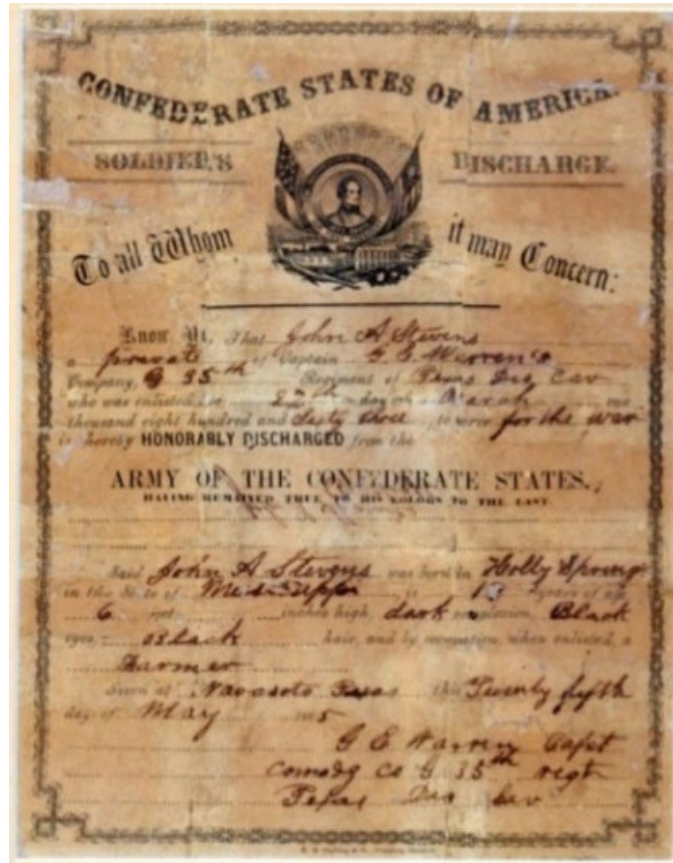 CONFEDERATE STATES OF AMERICA.
SOLDIER'S DISCHARGE.
To all Whom it may Concern:
Know Ye, That John A Stevens
a private of Captain G. E. Warren's
Company, G 35th Regiment of Texas Cav
who was enlisted the day of March one
thousand eight hundred and Sixty three, to serve for the war
is hereby HONORABLY DISCHARGED from the
ARMY OF THE CONFEDERATE STATES.,
HAVING REMAINED TRUE TO HIS COLORS TO THE LAST.
Said John A Stevens was born in Holly Spring
in the State of is years of age
6 feet inches high, dark complexion, Black
eyes, Black hair, and by occupation, when enlisted, a
Farmer
Given at Navasoto Texas this Twenty fifth
day of May
G E Warren Capt
comdg co G 35th regt
Texas Cav